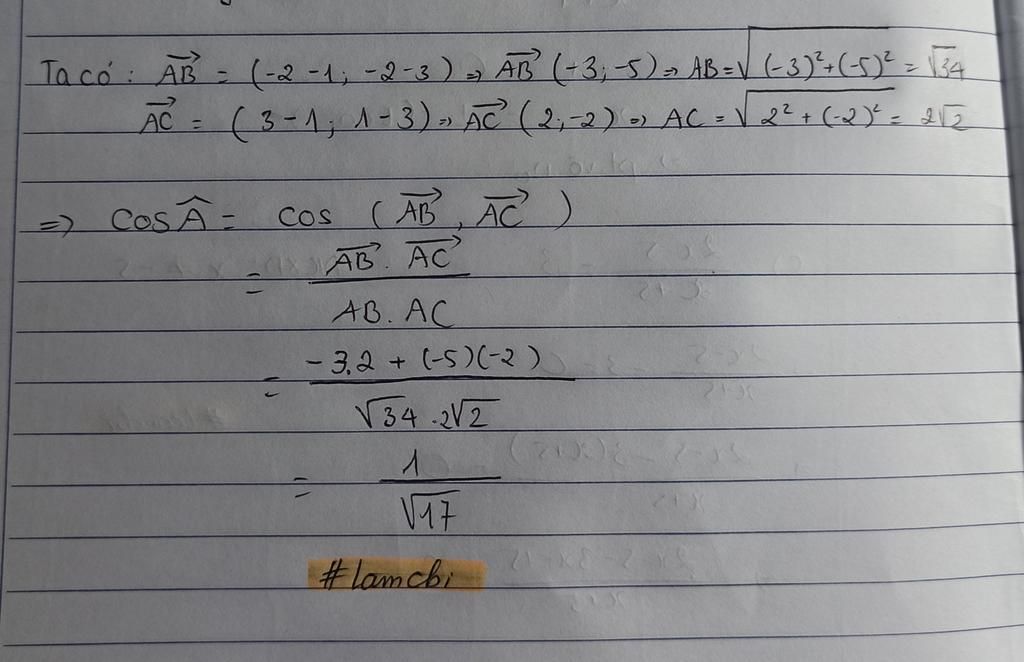 Ta có: $\overrightarrow{AB}$ = (-2-1; -2-3) ⇒ $\overrightarrow{AB}$ (-3;-5) ⇒ AB = $\sqrt{(-3)^2+(-5)^2}$ = $\sqrt{34}$
$\overrightarrow{AC}$ = (3-1; 1-3) ⇒ $\overrightarrow{AC}$ (2;-2) ⇒ AC = $\sqrt{2^2+(-2)^2}$ = $2\sqrt{2}$
⇒ cos $\widehat{A}$ = cos ($\overrightarrow{AB}$, $\overrightarrow{AC}$)
= $\frac{\overrightarrow{AB}.\overrightarrow{AC}}{AB.AC}$
= $\frac{-3.2+(-5)(-2)}{\sqrt{34}.2\sqrt{2}}$
= $\frac{1}{\sqrt{17}}$
#lamchi